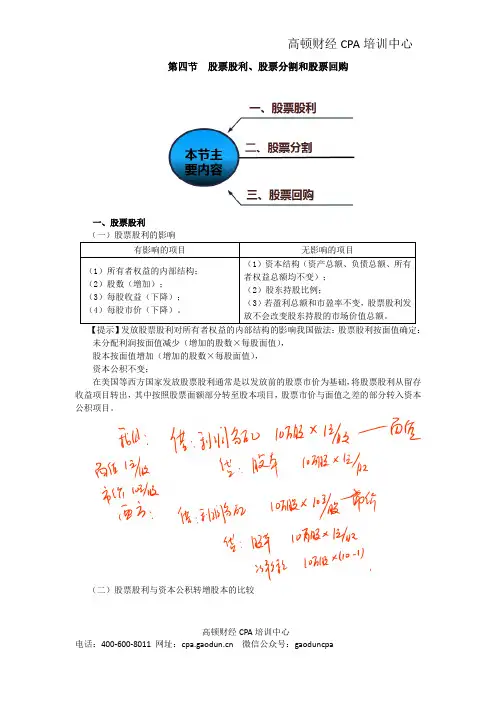 高顿财经 CPA 培训中心
第四节 股票股利、股票分割和股票回购
本节主
要内容
一、股票股利
二、股票分割
三、股票回购
一、股票股利
（一）股票股利的影响
有影响的项目 无影响的项目
（1）所有者权益的内部结构；
（2）股数（增加）；
（3）每股收益（下降）；
（4）每股市价（下降）。
（1）资本结构（资产总额、负债总额、所有
者权益总额均不变）；
（2）股东持股比例；
（3）若盈利总额和市盈率不变，股票股利发
放不会改变股东持股的市场价值总额。
【提示】发放股票股利对所有者权益的内部结构的影响我国做法：股票股利按面值确定：
未分配利润按面值减少（增加的股数×每股面值），
股本按面值增加（增加的股数×每股面值），
资本公积不变；
在美国等西方国家发放股票股利通常是以发放前的股票市价为基础，将股票股利从留存
收益项目转出，其中按照股票面额部分转至股本项目，股票市价与面值之差的部分转入资本
公积项目。
我国： 借：利润分配 10万股×1元/股 — 面值
面值1元/股 贷：股本 10万股×1元/股
市价10元/股
西方： 借：利润分配 10万股×10元/股 — 市价
贷：股本 10万股×1元/股
10万股×(10-1)
（二）股票股利与资本公积转增股本的比较
高顿财经 CPA 培训中心
电话：400-600-8011 网址：cpa.gaodun.cn 微信公众号：gaoduncpa